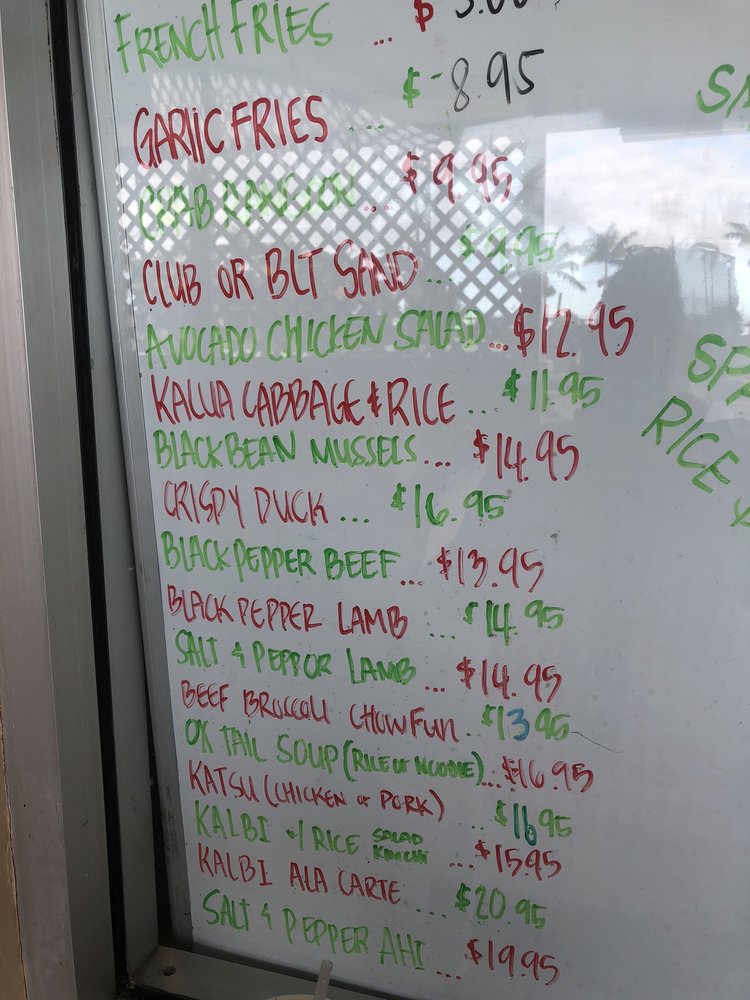 FRENCH FRIES ... $
GARLIC FRIES ... $-8.95
CRAB RANGOON ... $9.95
CLUB OR BLT SAND ... $9.95
AVOCADO CHICKEN SALAD ... $12.95
KALUA CABBAGE & RICE ... $11.95
BLACK BEAN MUSSELS ... $14.95
CRISPY DUCK ... $16.95
BLACK PEPPER BEEF ... $13.95
BLACK PEPPER LAMB ... $14.95
SALT & PEPPOR LAMB ... $14.95
BEEF BROCCOLI CHOW FUN .. $13.95
OX TAIL SOUP (RICE OR NOODLE) ... $16.95
KATSU (CHICKEN OR PORK) .. $16.95
KALBI w/ RICE SALAD KIMCHI ... $15.95
KALBI ALA CARTE .... $20.95
SALT & PEPPER AHI ... $19.95
RICE